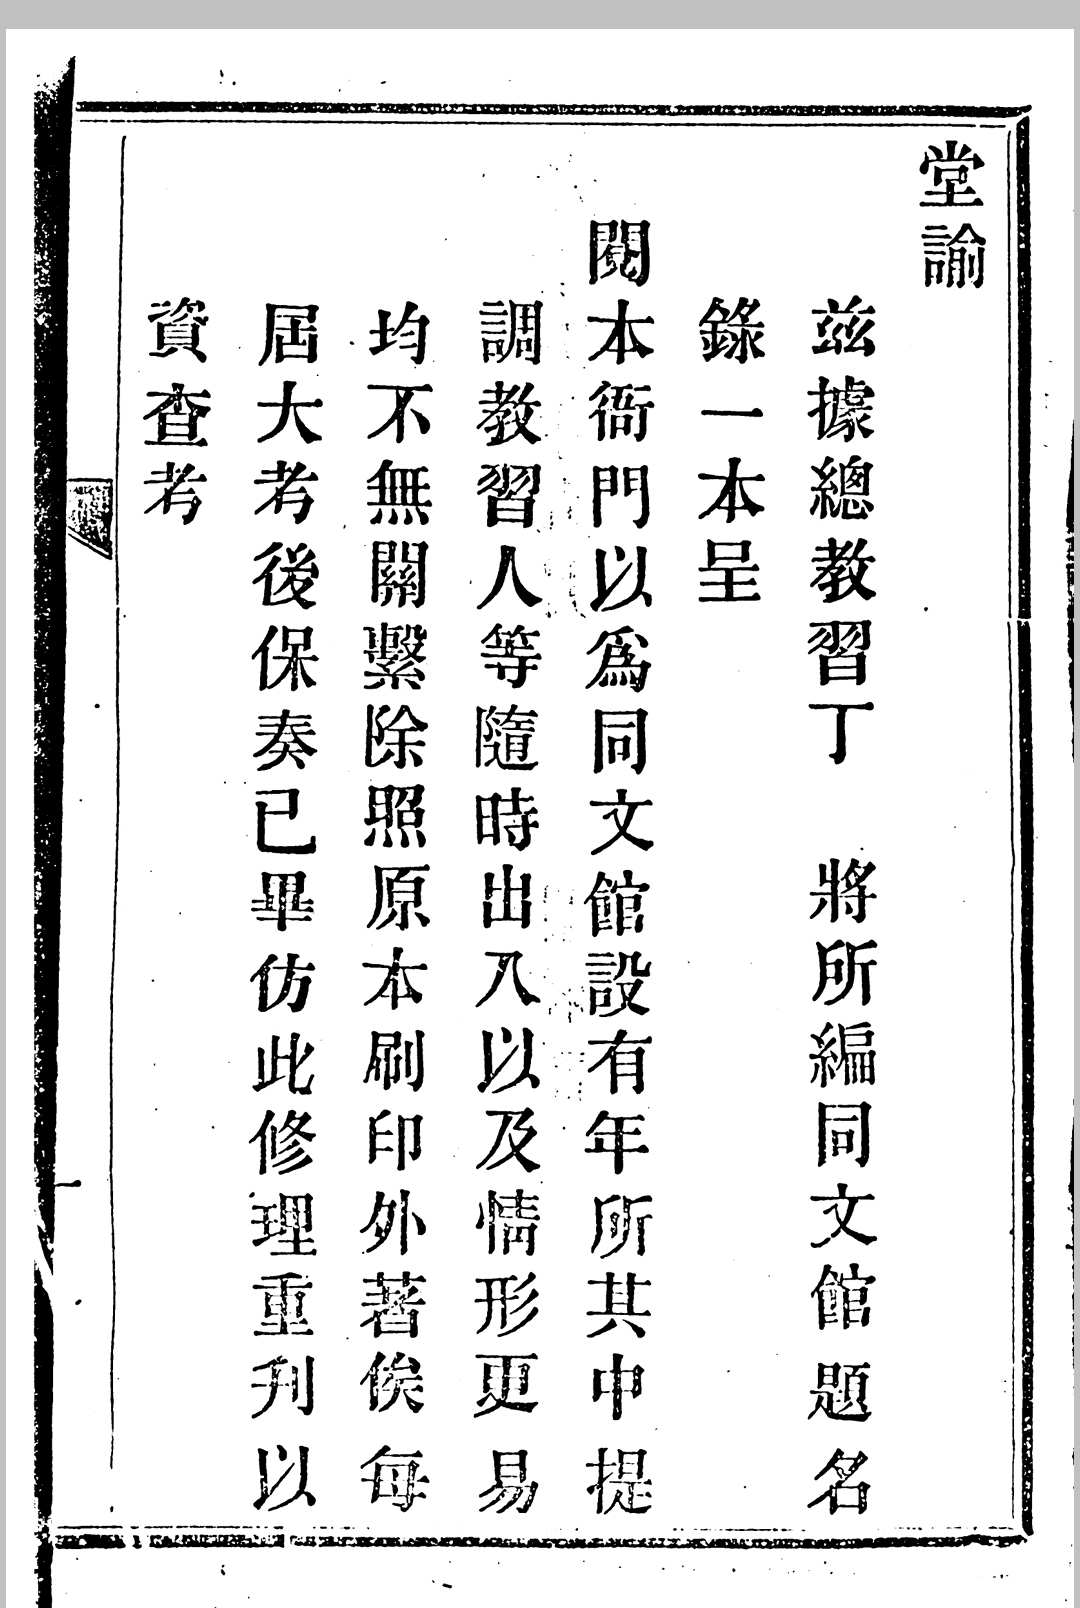 堂諭
茲據總教習丁　將所編同文館題名
錄一本呈
閱本衙門以爲同文館設有年所其中提
調教習人等隨時出入以及情形更易
均不無關繫除照原本刷印外著俟每
屆大考後保奏已畢仿此修理重刋以
資查考